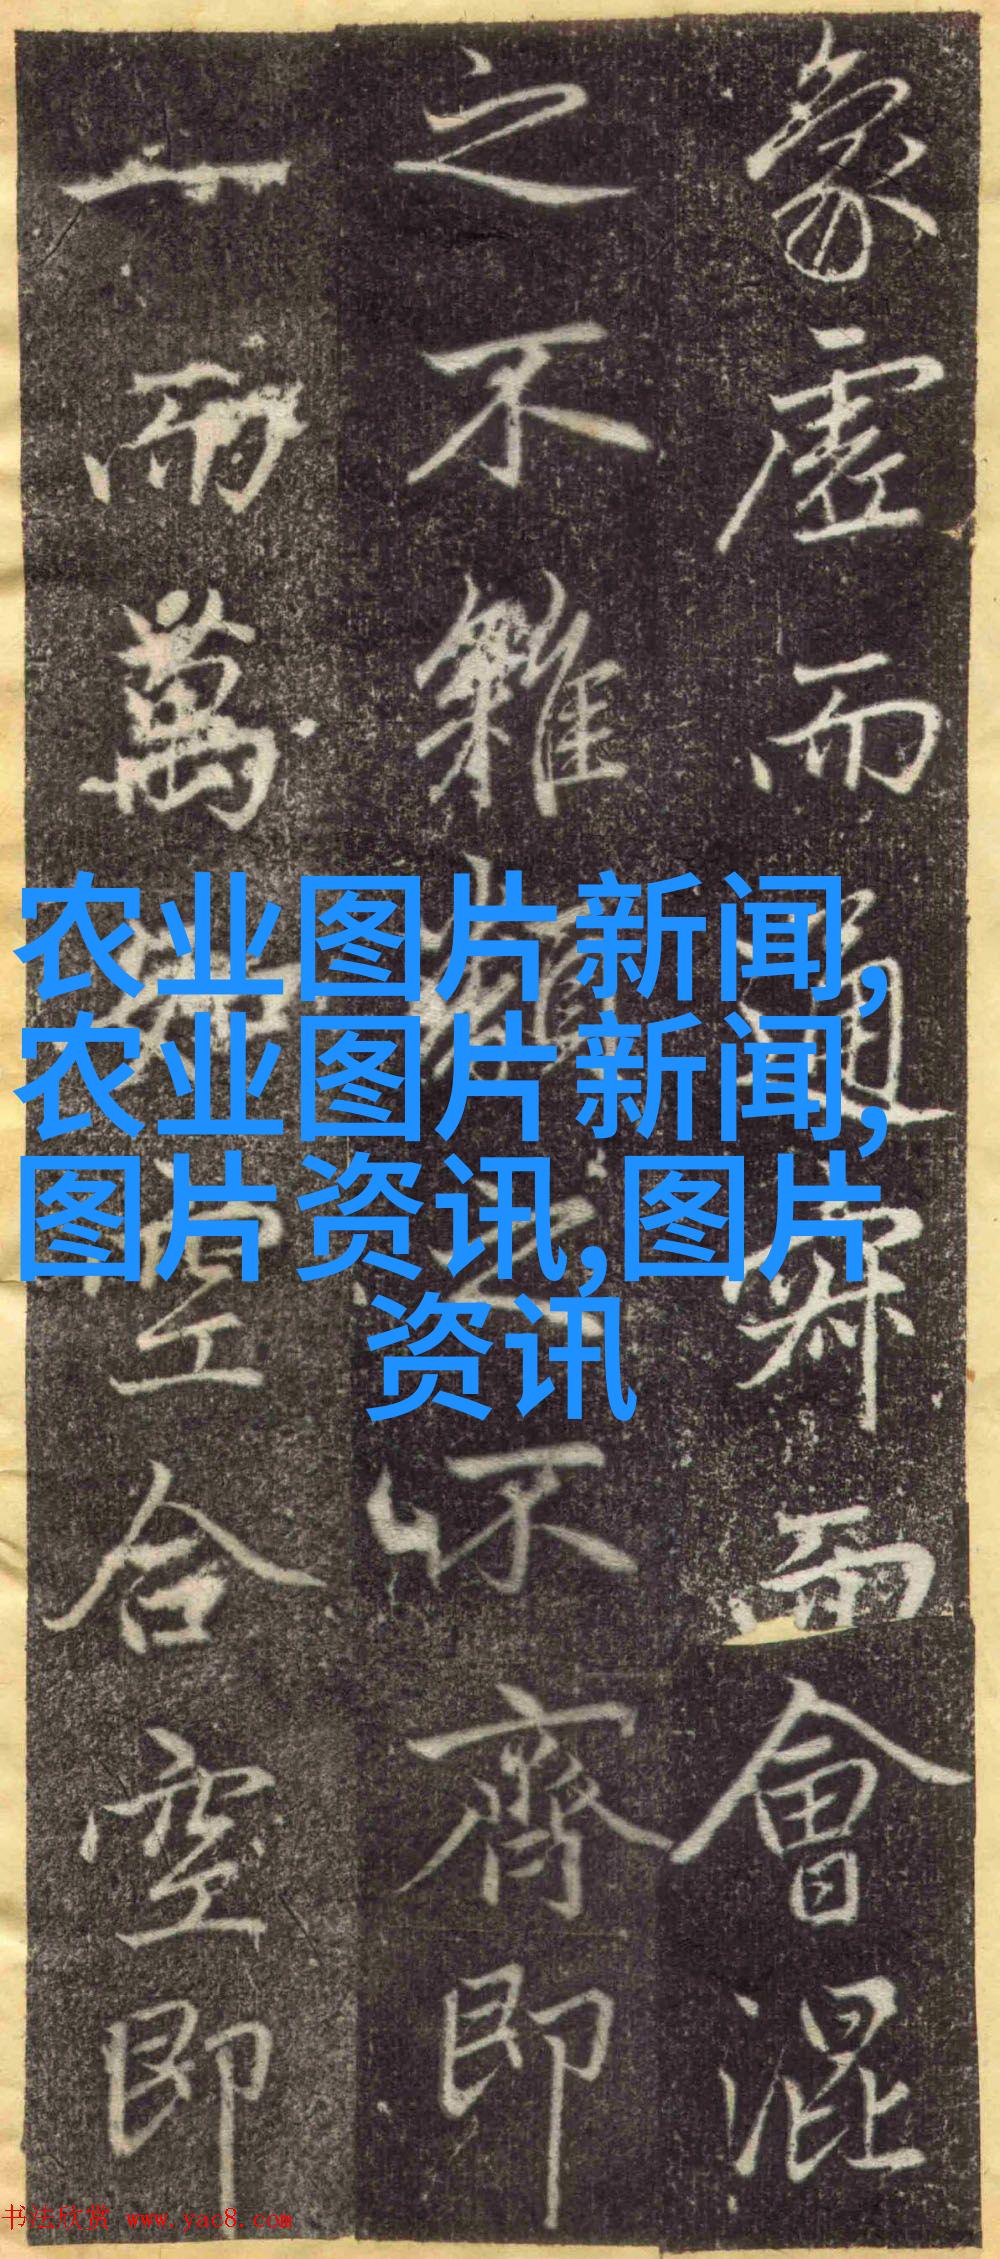 象虚而通而會混
之不雜類之不齊即
一而萬空合空即
农业图片新闻,
农业图片新闻,
图片资讯,图片
资讯
书法欣赏 www.yac8.com